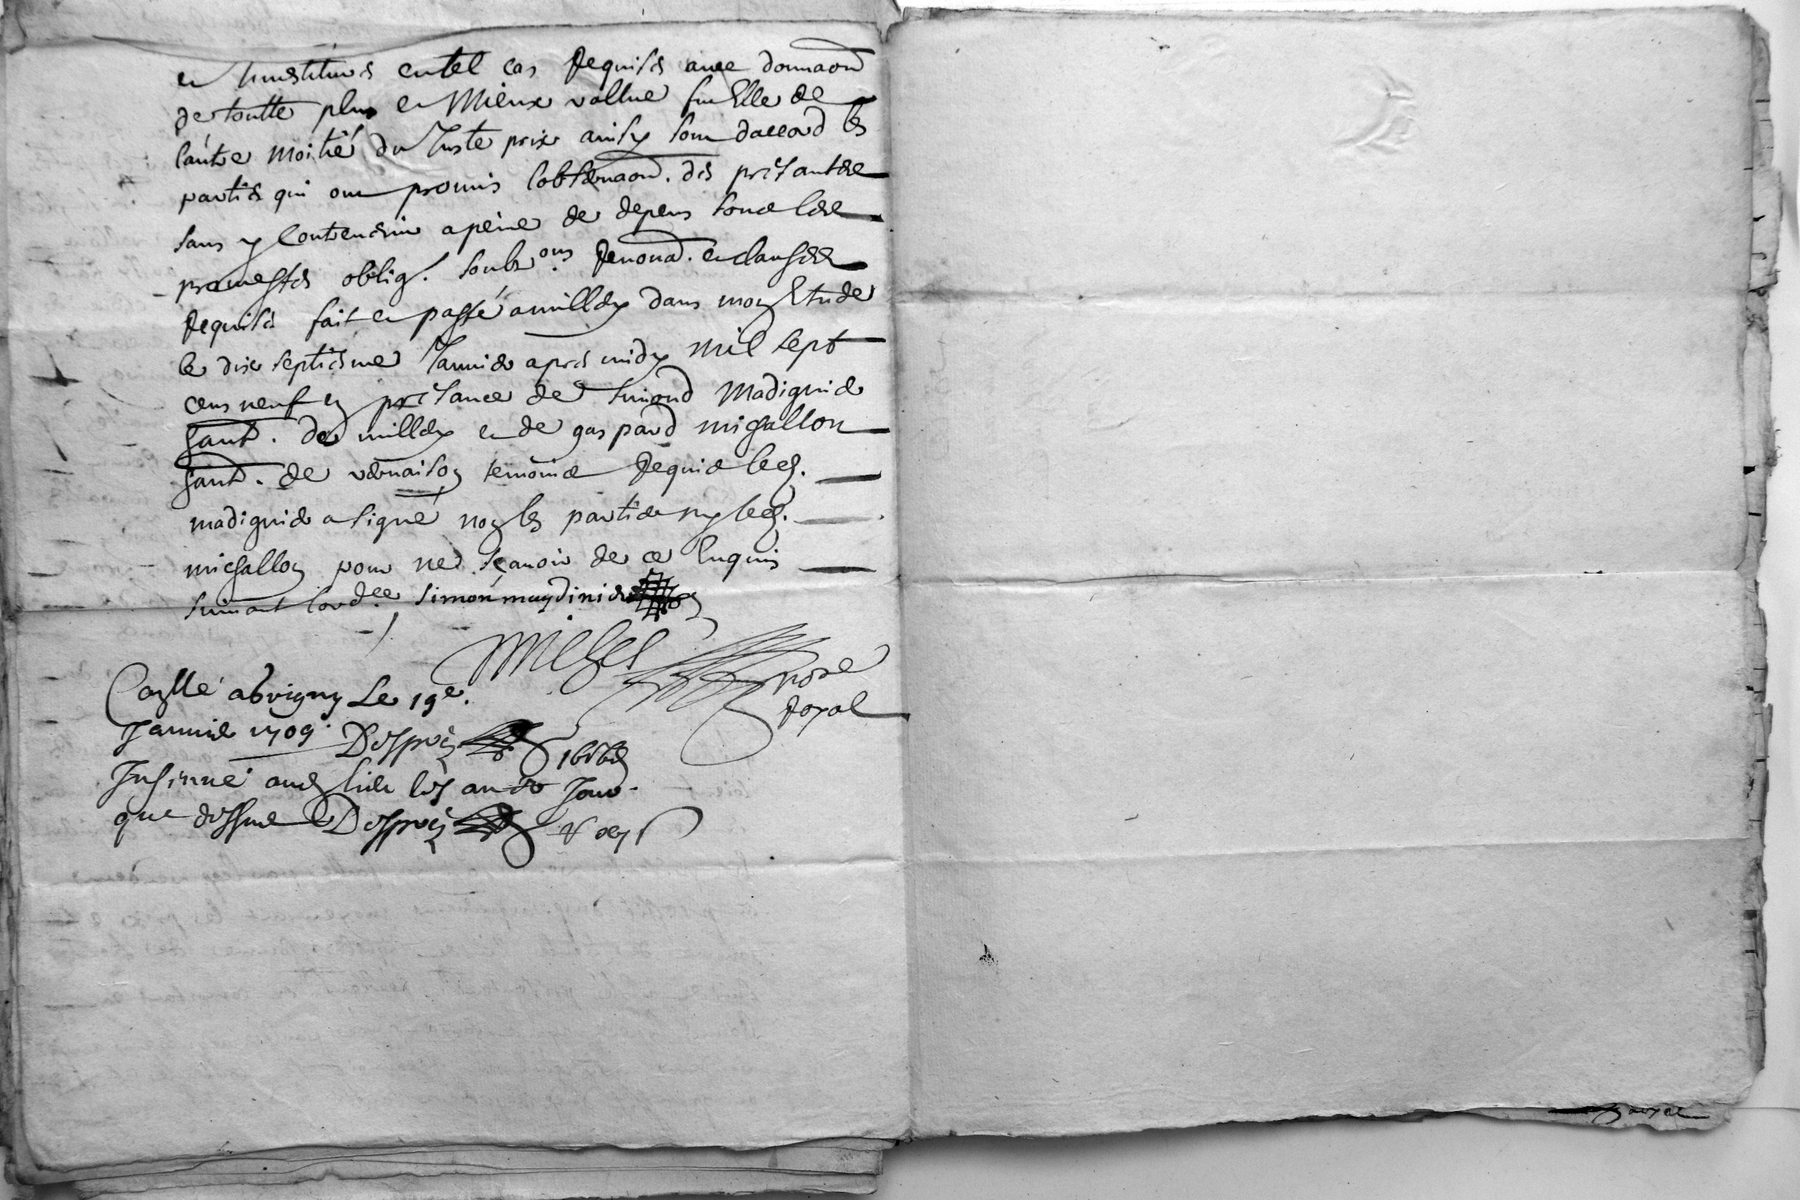 et Investitures en tel cas Requises avec donnaon
de toutte plus et Mieux vallue fut Elle de
lautre moitié du Juste prix ainsy sont daccord les
parties qui ont promis lobservaon. des presantes
sans y Contrevenir a peine de depens sous leur
promesses oblig. soubz.ons Renond. et clauses
Requises fait et passé a millery dans mon Etude
le dix septiesme Janvier apres midy mil sept
cens neuf en presance de Simond Madignier
habt. de millery et de gaspard michallon
habt. de vernaison temoins Requis led.
madignier a signé non les parties ny led.
michallon pour ne sçavoir de ce Enquis
suivant lordce simon maydinier
michel
nore
Royal
Conllé a brigny Le 19e.
Janvier 1709. Despres
Insinué aud lieu les an et Jour
que dessus Despres